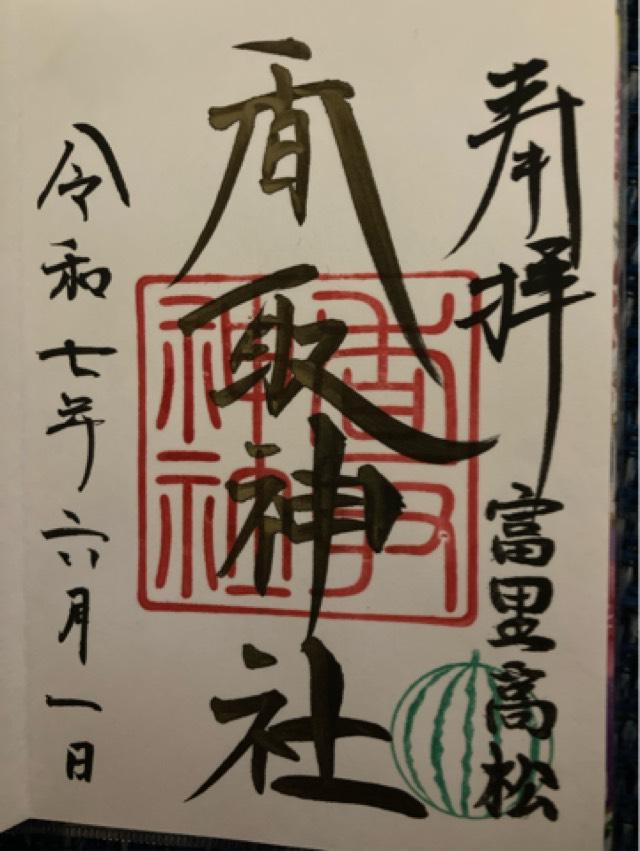 奉拝
富里高松
香取神社
香取神社
令和七年六月一日